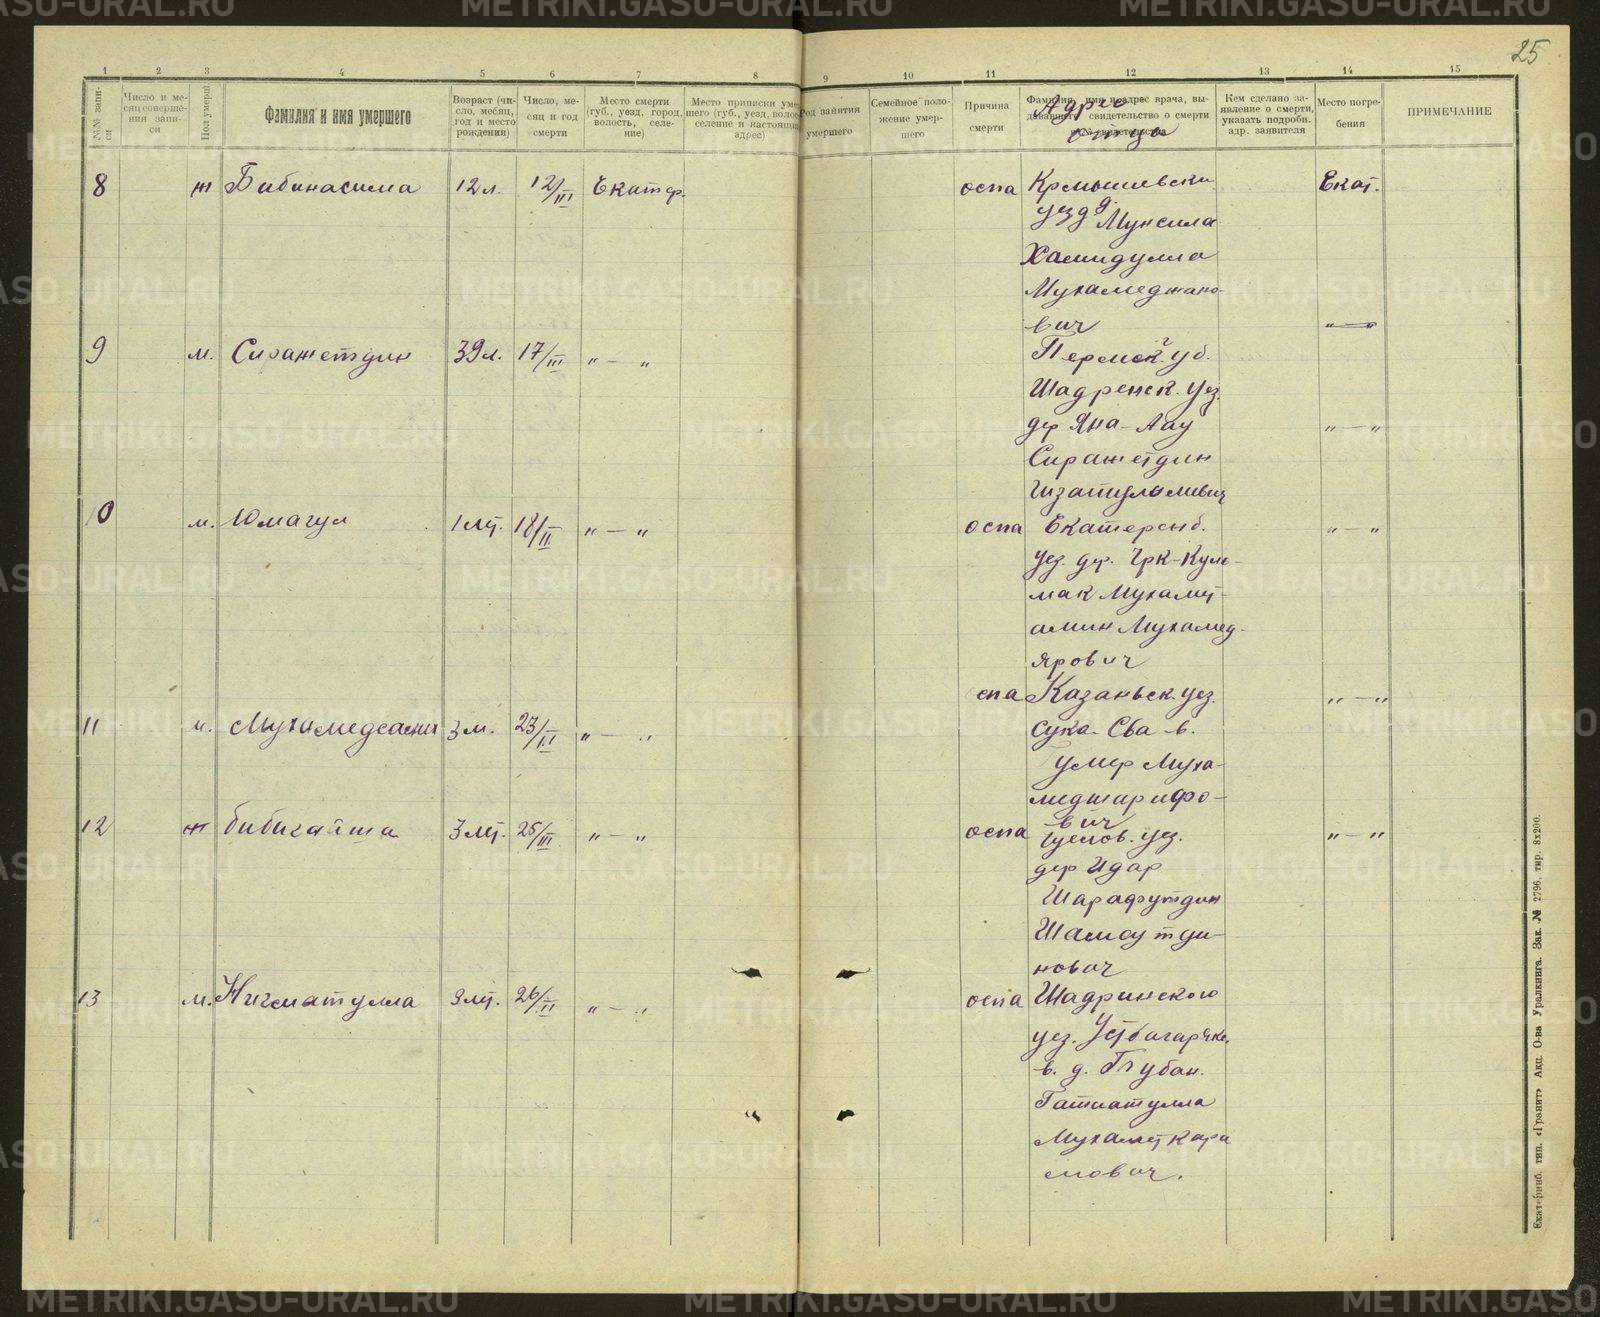 METRIKI.GASO-URAL.RU
25
1 2 3 4 5 6 7 8 9 10 11 12 13 14 15
№№ запи-
си
Число и ме-
сяц соверше-
ния запи-
си
Пол умерш.
Фамилия и имя умершего
Возраст (чи-
сло, месяц,
год и место
рождения)
Число, ме-
сяц и год
смерти
Место смерти
(губ., уезд, город,
волость, селе-
ние)
Место приписки уме-
шего (губ., уезд, волос
селение и настоящи
адрес)
Род занятия
умершего
Семейное поло-
жение умер-
шего
Причина
смерти
Фамилия, имя и адрес врача, вы-
дававшего свидетельство о смерти
Адрес
отца
Кем сделано за-
явление о смерти,
указать подробн.
адр. заявителя
Место погре-
бения
ПРИМЕЧАНИЕ
8 ж Бибинасима 12 л. 12/III Екатер. оспа Екат.
уезд д.
Хамидулла
Мухамеджано-
вич
9 м. Сиражетдин 39 л. 17/III " — " " — "
Пермск. уб.
Шадренск. уез.
дер Яна-Аау
" — "
Сиражетдин
10 м. Юмагул 1 лет. 18/II " — " оспа Екатеренб. " — "
уез. дер.
мак Мухамет-
амин Мухамед-
ярович
спа Казаньск. уез. " — "
11 м. Мухамедсани 3 м. 23/II " — "
умер Муха-
меджарифо-
вич
12 ж бибигайша 3 лет. 25/III " — " оспа уез. " — "
дер Идар
Шарафутдин
Шамсутди-
нович
13 м. Нигматулла 3 лет. 26/II " — " оспа Шадринского
уез.
в. д.
Мухаметкара
мович.
Екатеринб. тип. «Гранит» Акц. О-ва Уралкнига. Зак. № 2796, тир. 8х200.